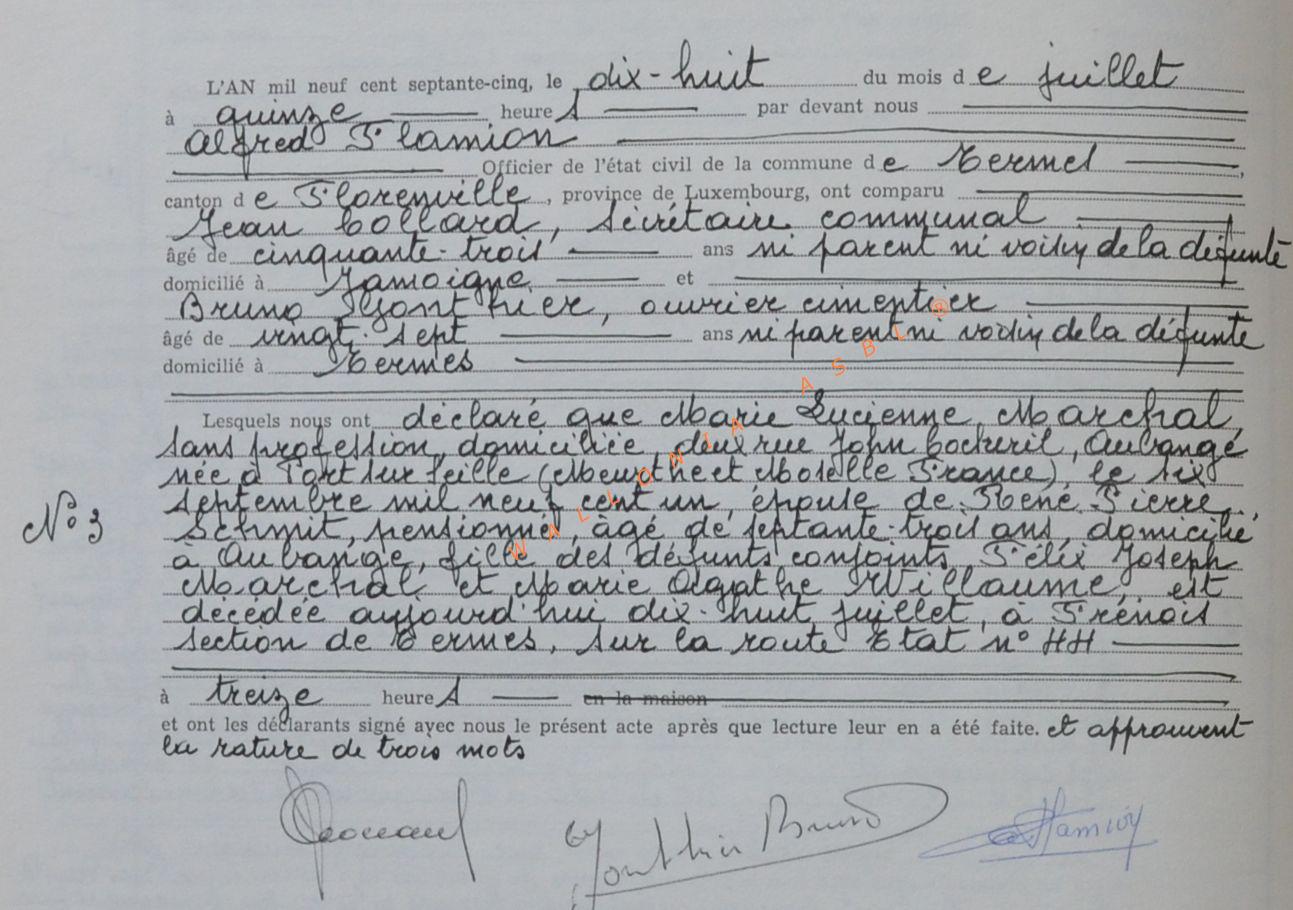 L'AN mil neuf cent septante-cinq, le dix-huit du mois d e juillet
à quinze heure s par devant nous
Alfred Flamion
Officier de l'état civil de la commune d e Termes,
canton d e Florenville, province de Luxembourg, ont comparu
Jean Collard, Secrétaire communal
âgé de cinquante-trois ans ni parent ni voisin de la défunte
domicilié à Jamoigne et
Bruno Gonthier, ouvrier cimentier
âgé de vingt-sept ans ni parent ni voisin de la défunte
domicilié à Termes
Lesquels nous ont déclaré que Marie Lucienne Marchal,
sans profession, domiciliée, deux rue John Cockeril, Aubange
née à Port sur Seille (Meurthe et Moselle France), le six
septembre mil neuf cent un, épouse de René Pierre
Schmit, pensionné, âgé de septante-trois ans, domicilié
N° 3
à Aubange, fille des défunts conjoints Félix Joseph
Marchal et Marie Agathe Willaume, est
décédée aujourd'hui dix-huit juillet, à Frénois
section de Termes, sur la route Etat n° 44
à treize heure s en la maison
et ont les déclarants signé avec nous le présent acte après que lecture leur en a été faite. et approuvent
la rature de trois mots
Gonthier Bruno
WALLONIA ASBL ®